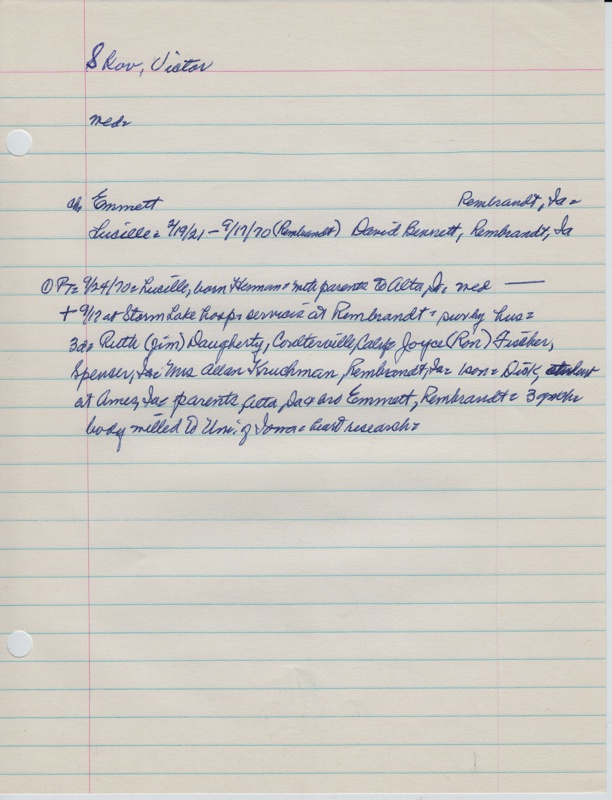 Skov, Victor
med=
c/o Emmett Rembrandt, Ia =
Lucille = 2/19/21 - 9/17/70 (Rembrandt) David Bennett, Rembrandt, Ia
① PT = 9/24/70 = Lucille, born Heman = with parents to Alta, Ia. med —
+ 9/17 at Storm Lake hosp = services at Rembrandt = surv by hus =
3 d = Ruth (Jim) Daugherty, Coulterville, Calif Joyce (Ron) Fischer,
Spenser, Ia = Mrs Allan Kruchman, Rembrandt, Ia = 1 son = Dick, student
at Ames, Ia = parents, Alta, Ia = bro Emmett, Rembrandt = 3 gdch =
body willed to Uni. of Iowa = heart research =